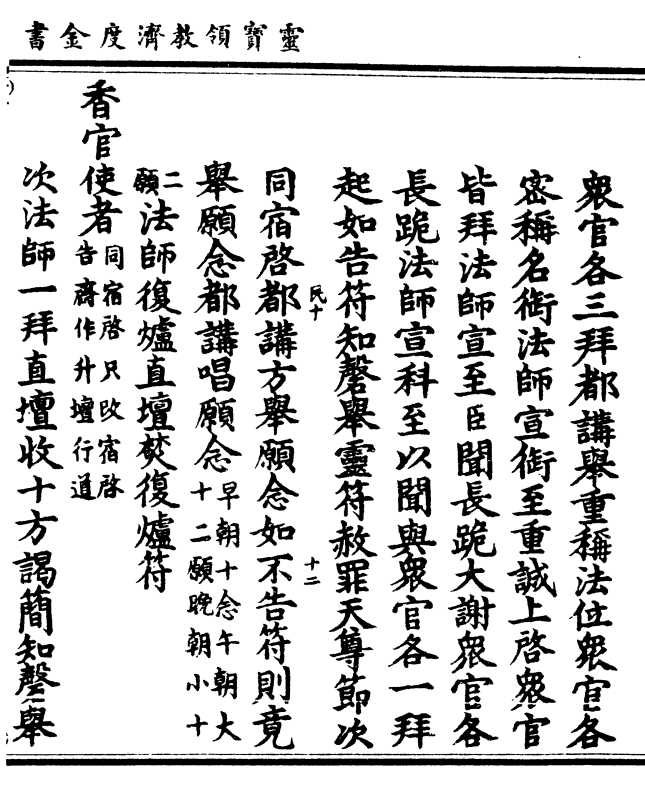 靈寶領教濟度金書
衆官各三拜都講舉重稱法位衆官各
密稱名銜法師宣銜至重誠上啓衆官
皆拜法師宣至臣聞長跪大謝衆官各
長跪法師宣科至以聞與衆官各一拜
起如告符知磬舉靈符赦罪天尊節次
民十
十二
同宿啓都講方舉願念如不告符則竟
舉願念都講唱願念早朝十念午朝大
十二願晚朝小十
二願法師復爐直壇焚復爐符
香官使者同宿啓只改宿啓
告齋作升壇行道
次法師一拜直壇收十方謁簡知磬舉